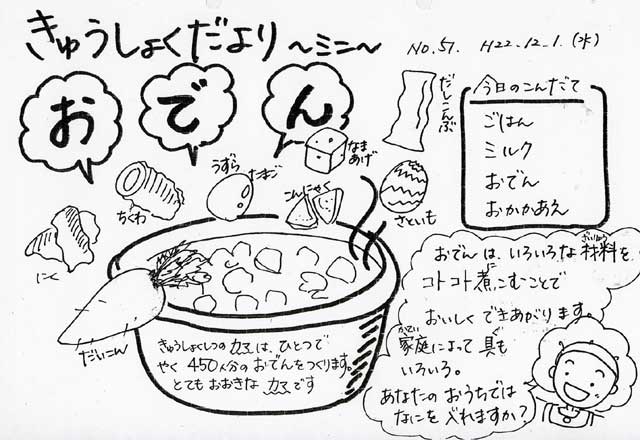 きゅうしょくだより ～ミニ～
No.57. H22.12.1.(水)
おでん
だしこんぶ
なまあげ
うずらたまご
こんにゃく
ちくわ
さといも
にく
だいこん
今日のこんだて
ごはん
ミルク
おでん
おかかあえ
きゅうしょくしつのカマは、ひとつで
やく450人分のおでんをつくります。
とてもおおきなカマです
おでんは、いろいろな材料を
ざいりょう
コトコト煮こむことで
に
おいしくできあがります。
かてい
家庭によって具も
ぐ
いろいろ。
あなたのおうちでは
なにを入れますか？